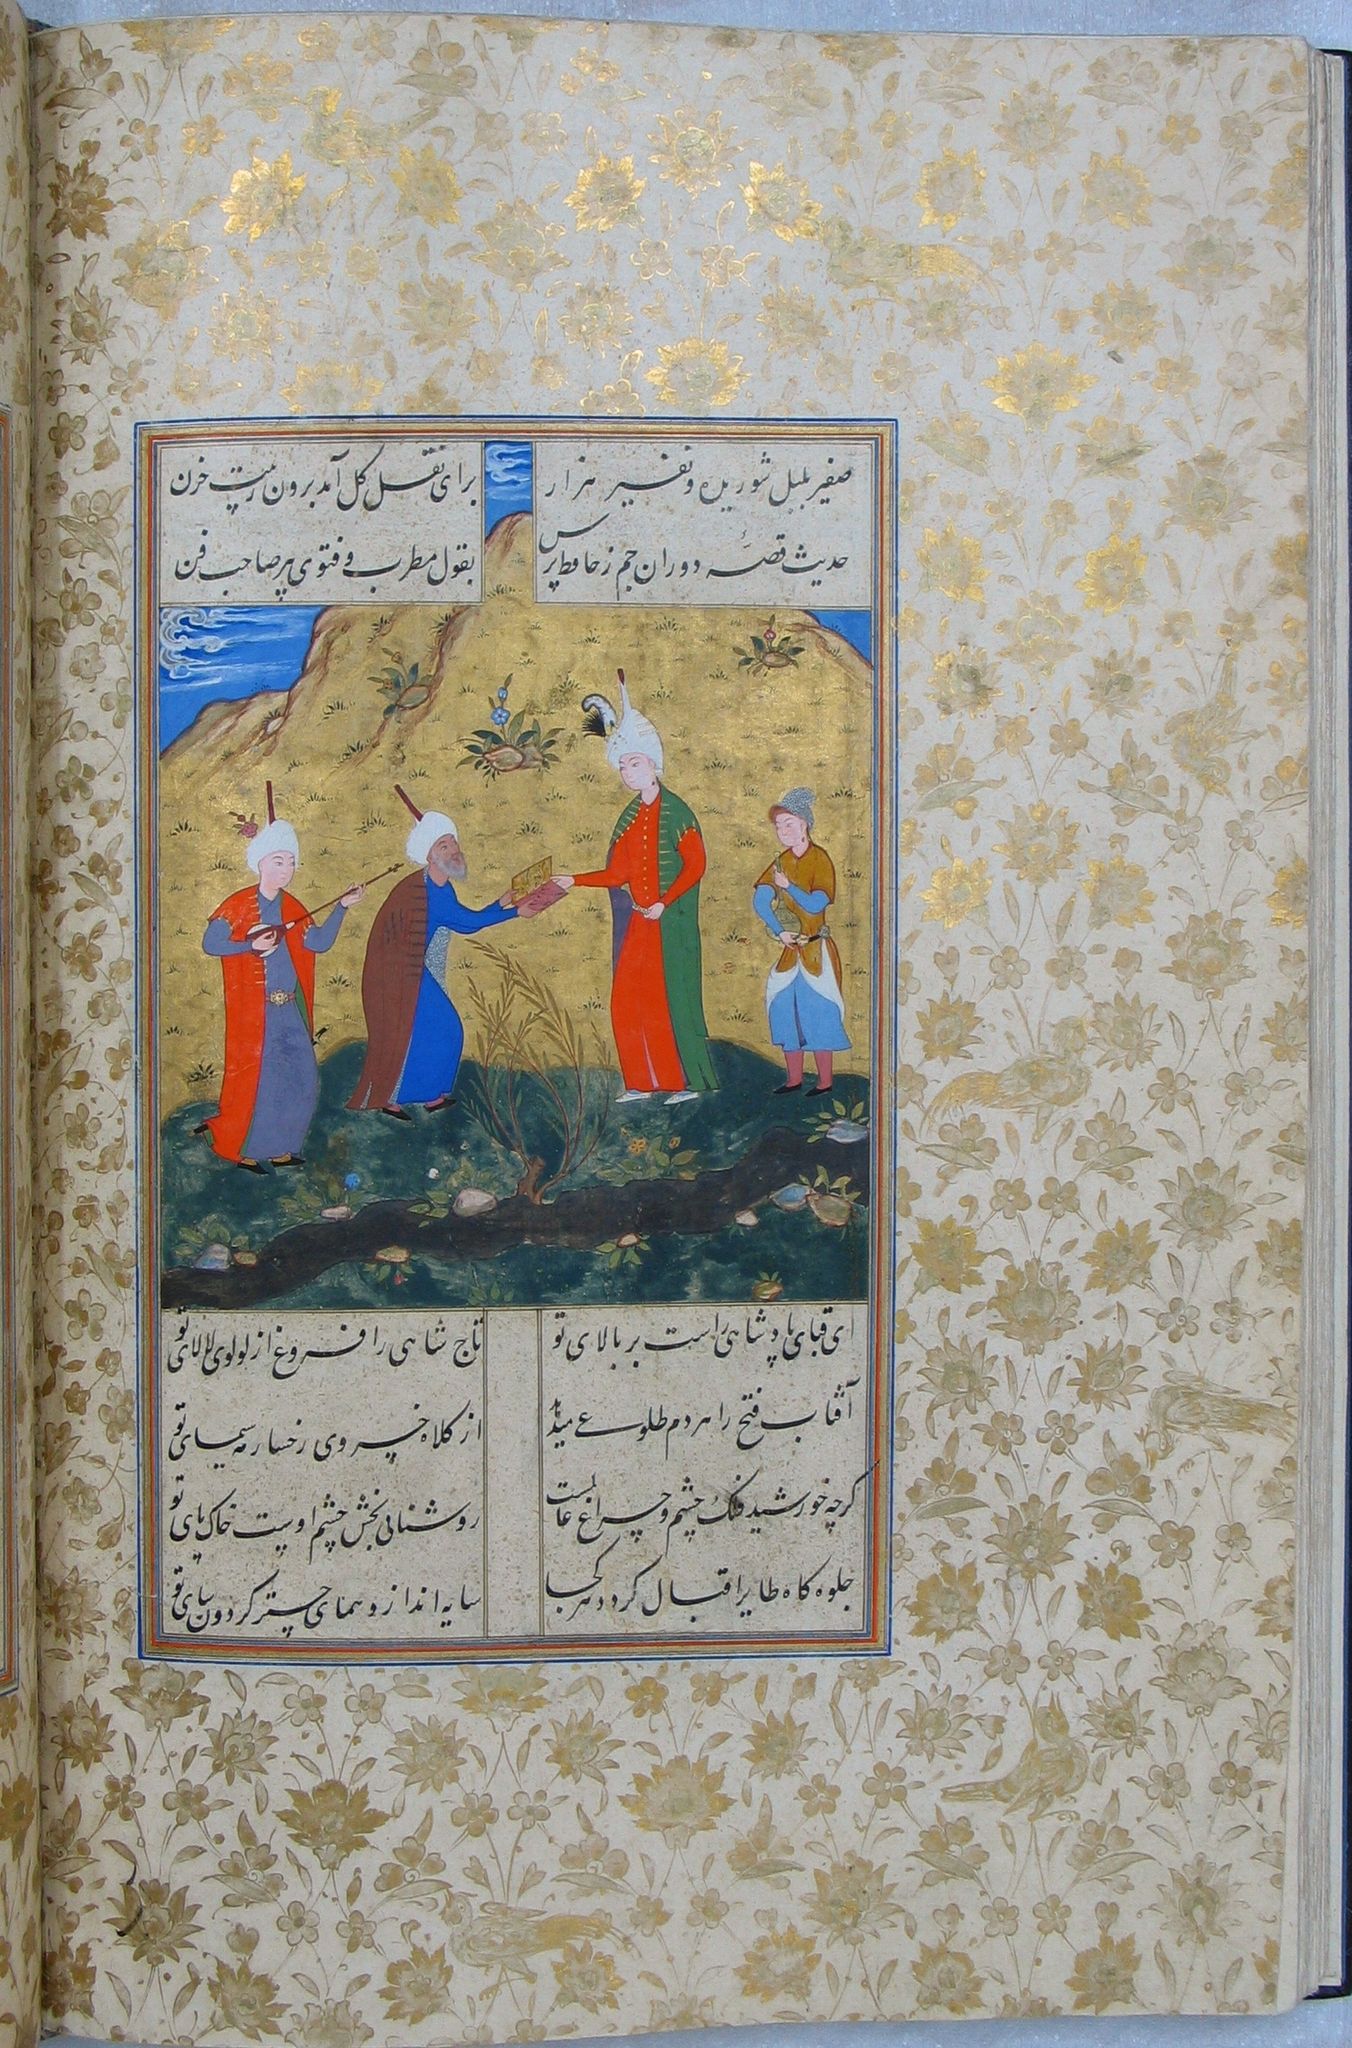 صفیر بلبل شوریده و نفیر هزار
برای نقل گل آمد برون ز بیت حزن
حدیث قصهٔ دوران جم ز حافظ پرس
بقول مطرب و فتوی پیر صاحب فن
ای قبای پادشاهی راست بر بالای تو
تاج شاهی را فروغ از لولوی لالای تو
آفتاب فتح را هر دم طلوعی میدهد
از کلاه خسروی رخسار مه سیمای تو
گرچه خورشید فلک چشم و چراغ عالمست
روشنائی بخش چشم اوست خاک پای تو
جلوه کاه طایر اقبال کردد هر کجا
سایه اندازد همای چتر کردون سای تو